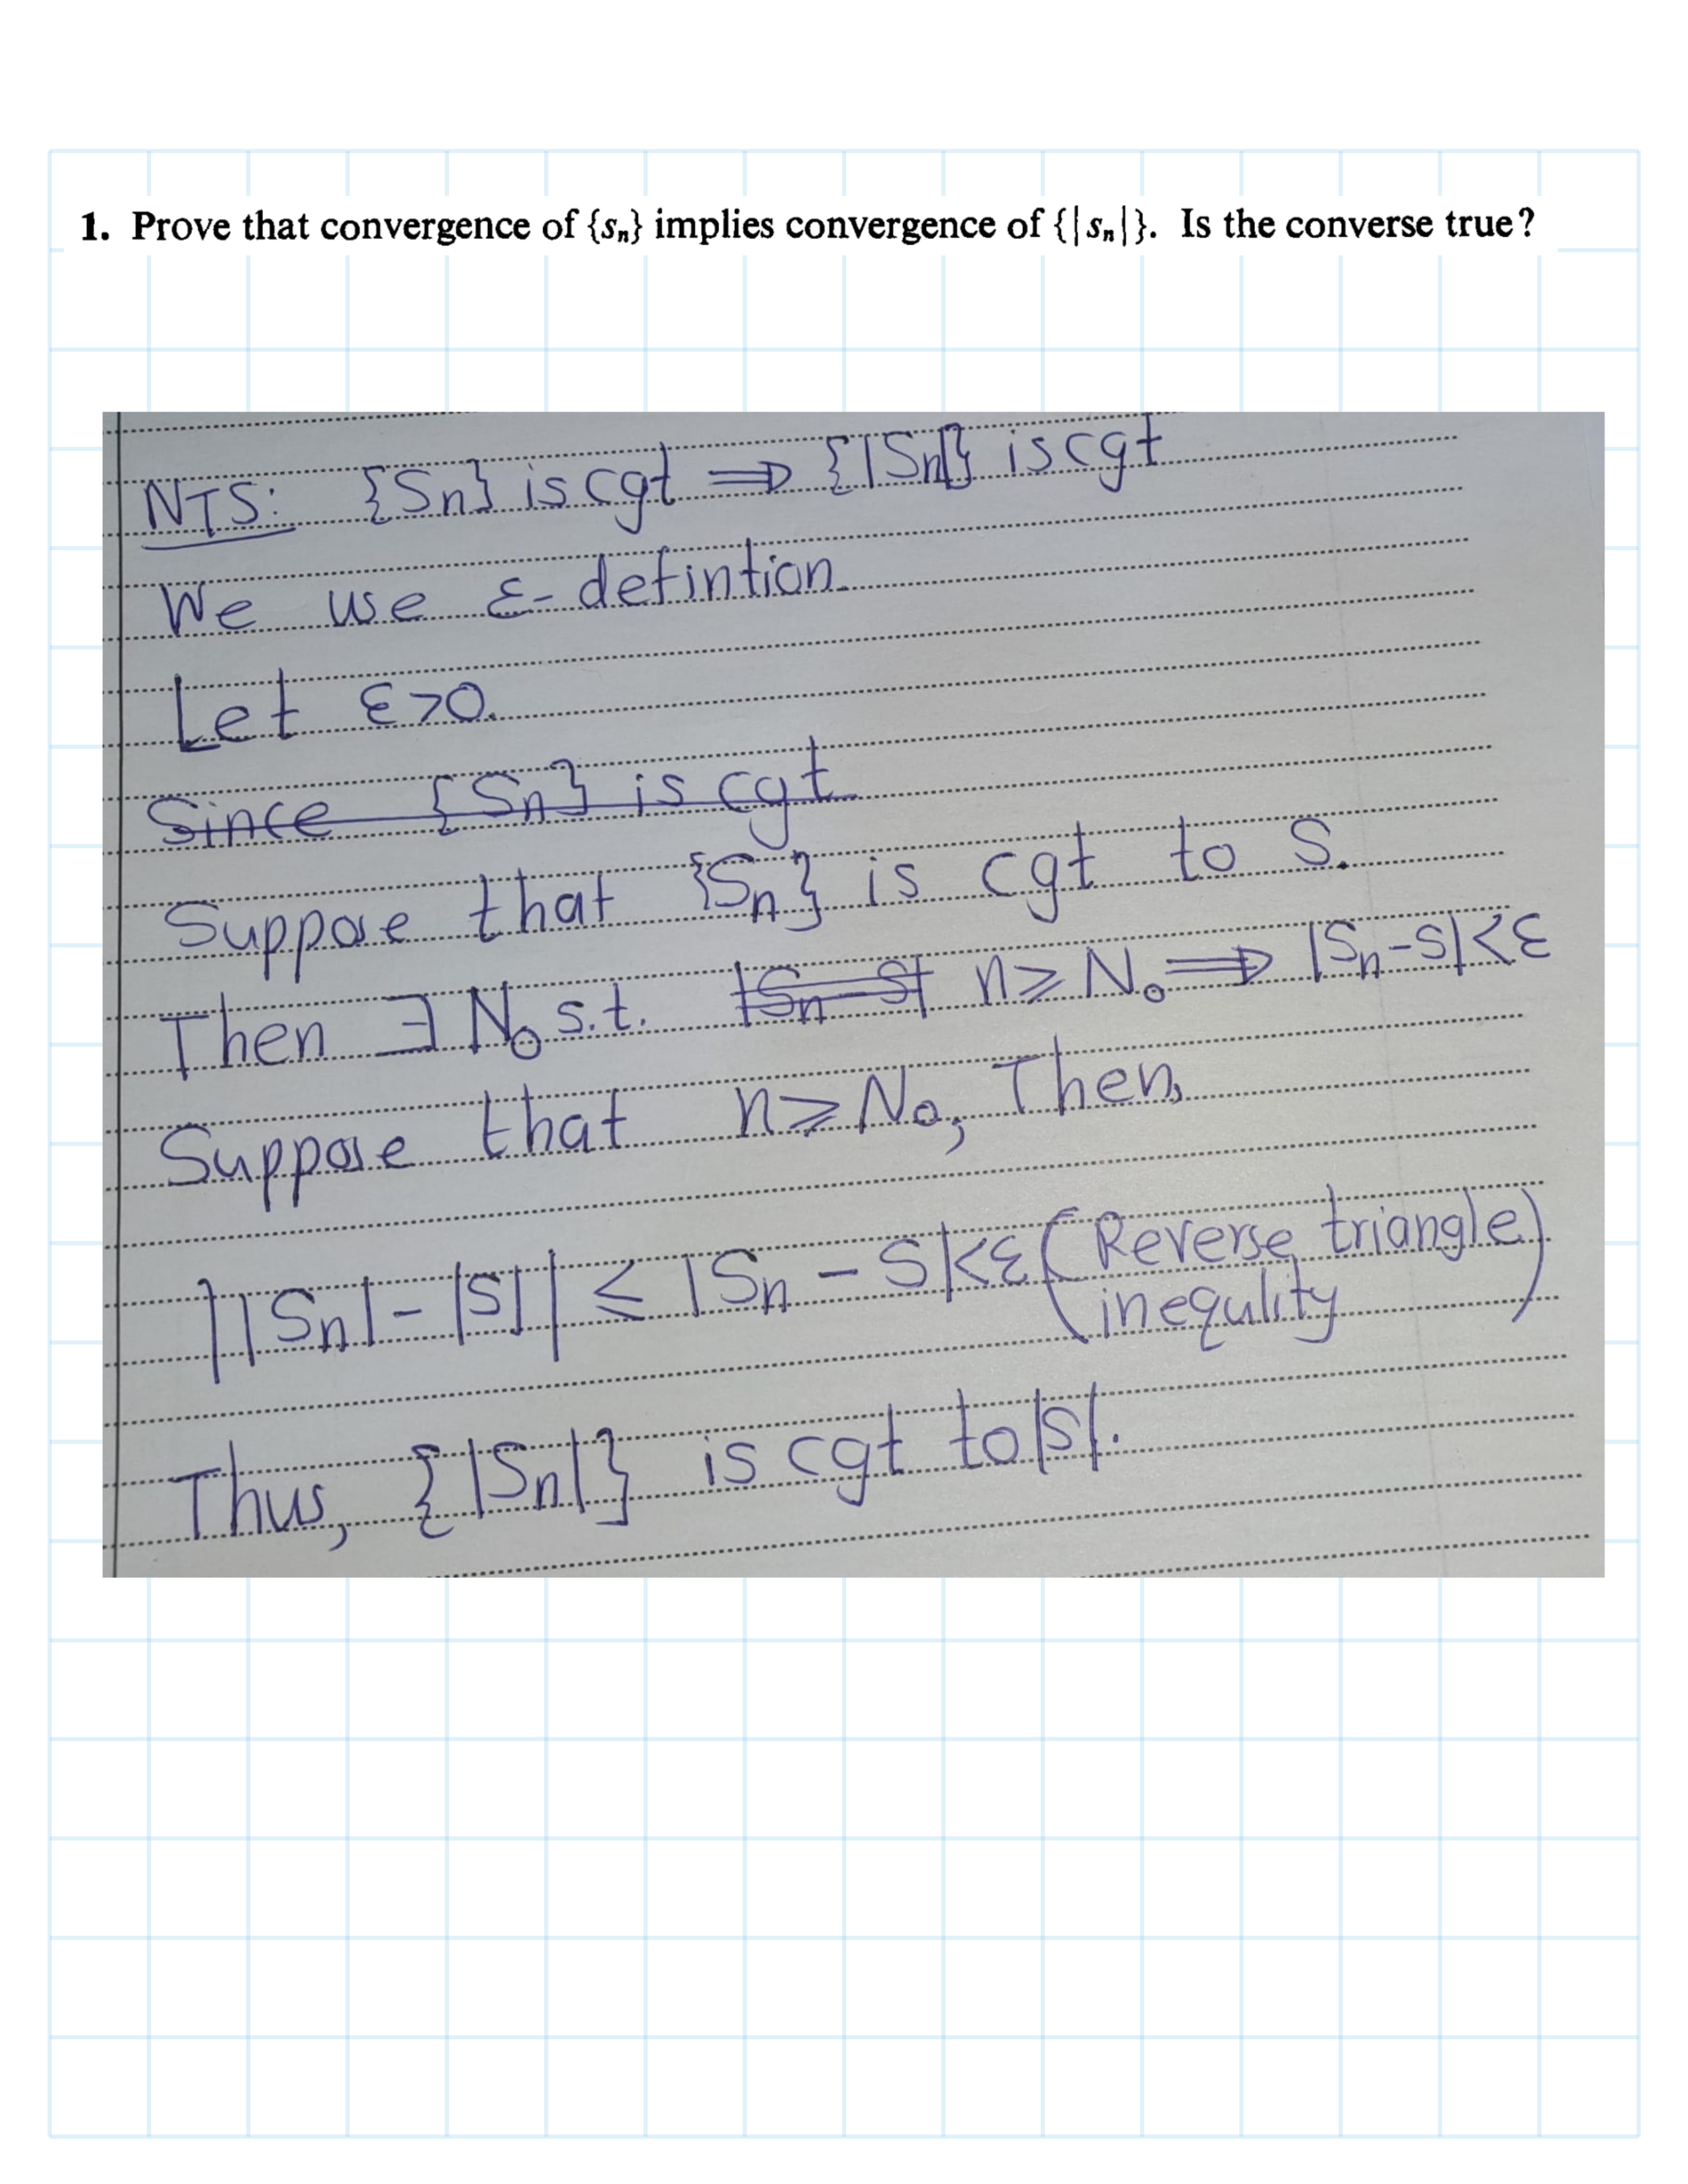 1. Prove that convergence of {sₙ} implies convergence of {|sₙ|}. Is the converse true?
NTS: {Sn} is cgt ⇒ {|Sn|} is cgt
We use ε-defintion.
Let ε>0.
Since {Sn} is cgt
Suppose that {Sn} is cgt to S.
Then ∃ N₀ s.t. |Sn-S| n≥N₀ ⇒ |Sn-S|<ε
Suppose that n≥N₀, Then,
||Sn|-|S|| ≤ |Sn-S|<ε (Reverse triangle
inequlity)
Thus, {|Sn|} is cgt to |S|.